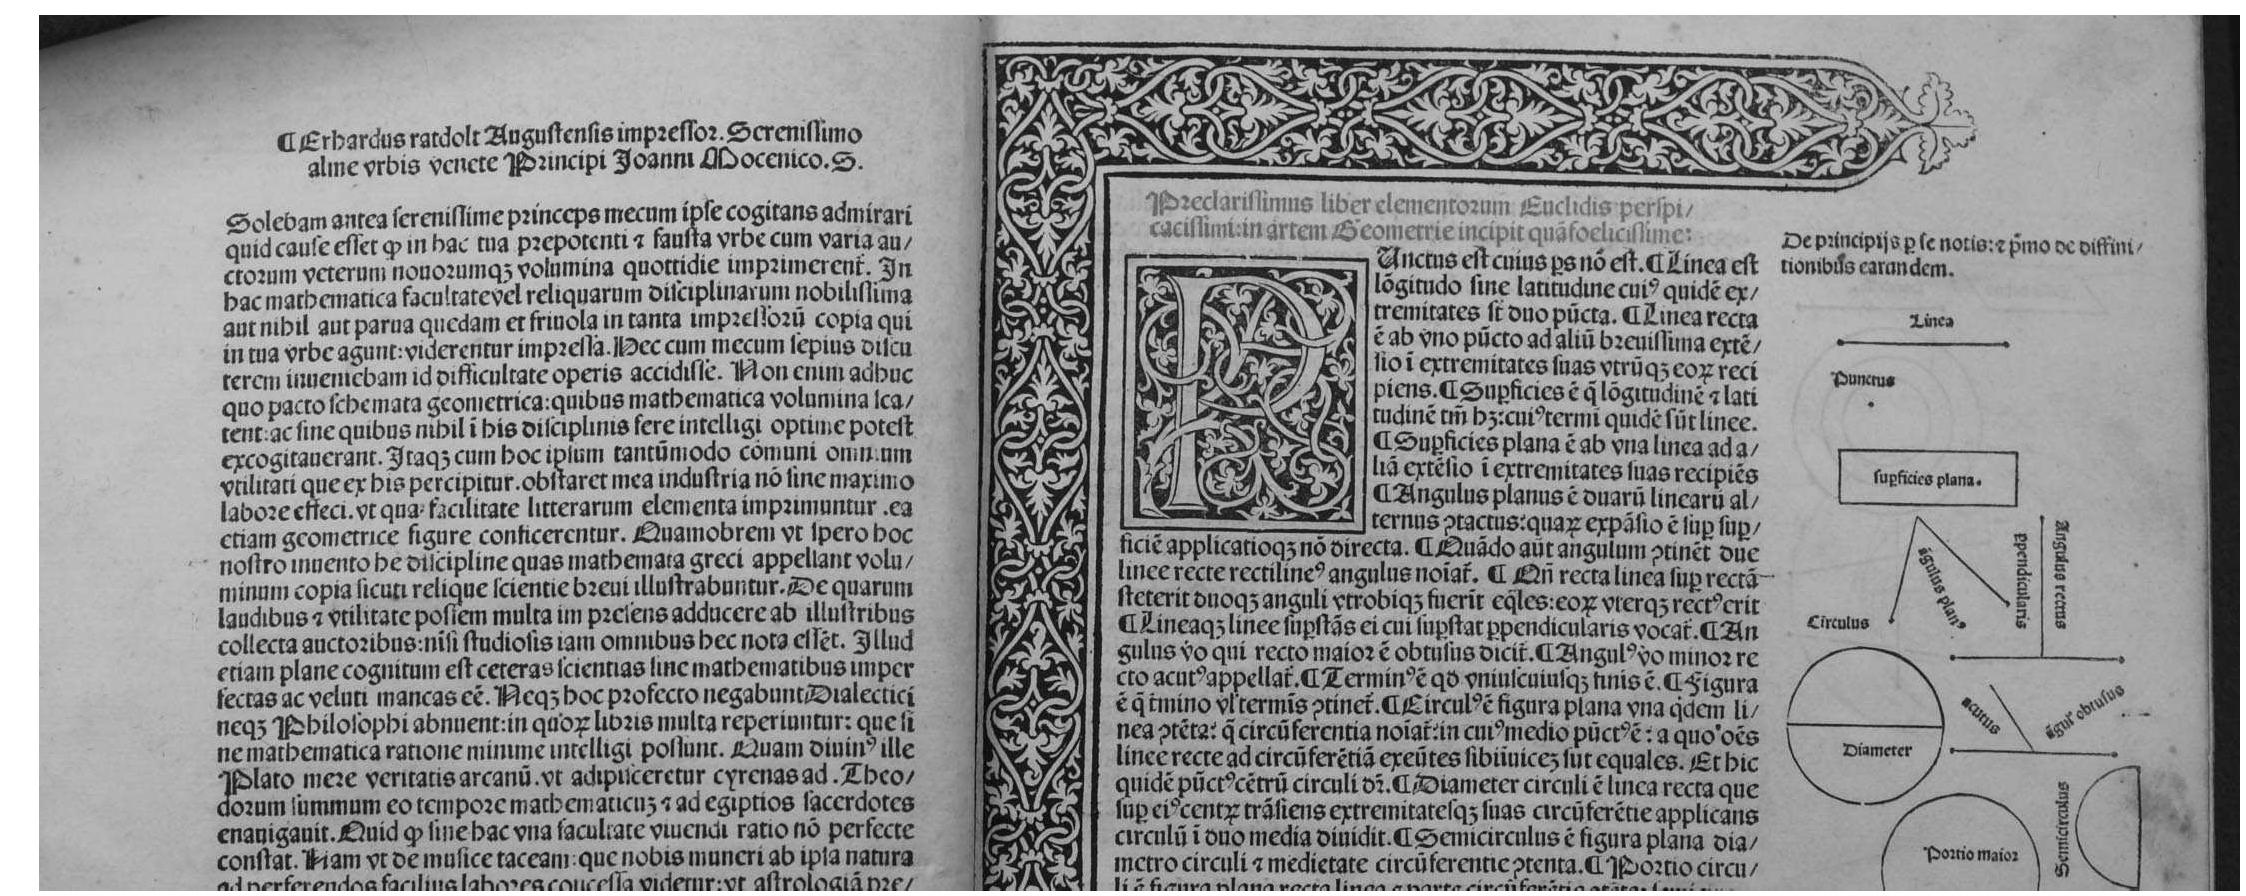 ¶Erhardus ratdolt Augustensis impressor. Serenissimo
alme vrbis venete Principi Joanni Mocenico. S.
Solebam antea serenissime princeps mecum ipse cogitans admirari
quid cause esset ꝙ in hac tua prepotenti ⁊ fausta vrbe cum varia au/
ctorum veterum nouorumqꝫ volumina quottidie imprimerent̃. In
hac mathematica facultate vel reliquarum disciplinarum nobilissima
aut nihil aut parua quedam et friuola in tanta impressorū copia qui
in tua vrbe agunt: viderentur impressa. Hec cum mecum sepius discu
terem inueniebam id difficultate operis accidisse. Non enim adhuc
quo pacto schemata geometrica: quibus mathematica volumina sca/
tent: ac sine quibus nihil ī his disciplinis fere intelligi optime potest
excogitauerant. Itaqꝫ cum hoc ipsum tantūmodo cōmuni omnium
vtilitati que ex his percipitur. obstaret mea industria nō sine maximo
labore effeci. vt qua facilitate litterarum elementa imprimuntur. ea
etiam geometrice figure conficerentur. Quamobrem vt spero hoc
nostro inuento he discipline quas mathemata greci appellant volu/
minum copia sicuti relique scientie breui illustrabuntur. De quarum
laudibus ⁊ vtilitate possem multa im presens adducere ab illustribus
collecta auctoribus: nisi studiosis iam omnibus hec nota essēt. Illud
etiam plane cognitum est ceteras scientias sine mathematibus imper
fectas ac veluti mancas eē. Neqꝫ hoc profecto negabunt Dialectici
neqꝫ Philosophi abnuent: in quoꝝ libris multa reperiuntur: que si
ne mathematica ratione minime intelligi possunt. Quam diuinꝰ ille
Plato mere veritatis arcanū. vt adipisceretur cyrenas ad. Theo/
dorum summum eo tempore mathematicuꝫ ⁊ ad egiptios sacerdotes
enauigauit. Quid ꝙ sine hac vna facultate viuendi ratio nō perfecte
constat. Nam vt de musice taceam: que nobis muneri ab ipsa natura
ad perferendos facilius labores concessa videtur: vt astrologiā pre/
Preclarissimus liber elementorum Euclidis perspi/
cacissimi: in artem Geometrie incipit quāfoelicissime:
PUnctus est cuius ꝑs nō est. ¶Linea est
lōgitudo sine latitudine cuiꝰ quidē ex/
tremitates st̄ duo pūcta. ¶Linea recta
ē ab vno pūcto ad aliū breuissima extē/
sio ī extremitates suas vtrūqꝫ eoꝝ reci
piens. ¶Supficies ē q̄ lōgitudinē ⁊ lati
tudinē tm̄ hꝫ: cuiꝰ termi quidē sūt linee.
¶Supficies plana ē ab vna linea ad a/
liā extēsio ī extremitates suas recipiēs
¶Angulus planus ē duarū linearū al/
ternus ꝯtactus: quaꝝ expāsio ē sup sup/
ficiē applicatioqꝫ nō directa. ¶Quādo aūt angulum ꝯtinēt due
linee recte rectilineꝰ angulus noīat̃. ¶Qn̄ recta linea sup rectā
steterit duoqꝫ anguli vtrobiqꝫ fuerīt eq̄les: eoꝝ vterqꝫ rectꝰ erit
¶Lineaqꝫ linee supstās ei cui supstat ꝑpendicularis vocat̃. ¶An
gulus v̊o qui recto maior ē obtusus dicit̃. ¶Angulꝰ v̊o minor re
cto acutꝰ appellat̃. ¶Terminꝰ ē qd̄ vniuscuiusqꝫ finis ē. ¶Figura
ē q̄ t̄mino vl̓ termīs ꝯtinet̃. ¶Circulꝰ ē figura plana vna q̄dem li/
nea ꝯtēta: q̄ circūferentia noīat̃: in cuiꝰ medio pūctꝰ ē: a quo oēs
linee recte ad circūferētiā exeūtes sibiīuiceꝫ sūt equales. Et hic
quidē pūctꝰ cētrū circuli dr̄. ¶Diameter circuli ē linea recta que
sup eiꝰ centꝝ trāsiens extremitatesqꝫ suas circūferētie applicans
circulū ī duo media diuidit. ¶Semicirculus ē figura plana dia/
metro circuli ⁊ medietate circūferentie ꝯtenta. ¶Portio circu/
li ē figura plana recta linea ⁊ parte circūferētie ꝯtēta:
De principijs ꝑ se notis: ⁊ p̄mo de diffini/
tionibus earandem.
Linea
Punctus
supficies plana.
āgulus planꝰ
ꝑpendicularis
Angulus rectus
Circulus
acutus
āgulꝰ obtusus
Diameter
Semicirculus
Portio maior